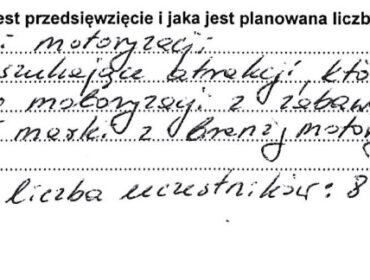 est przedsięwzięcie i jaka jest planowana liczb
i motoryzacji;
szukające atrakcji, któ
o motoryzacji z zabaw
i marki z branży motory
liczba uczestników: 8